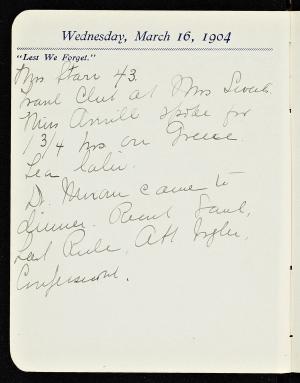 Wednesday, March 16, 1904
"Lest We Forget."
Mrs Starr 43.
Club at Mrs
Miss spoke for
1 3/4 hrs on Greece.
Tea later.
Dr. came to
dinner. Read Saul,
Last Ride, Att Vogler,
Confessional.